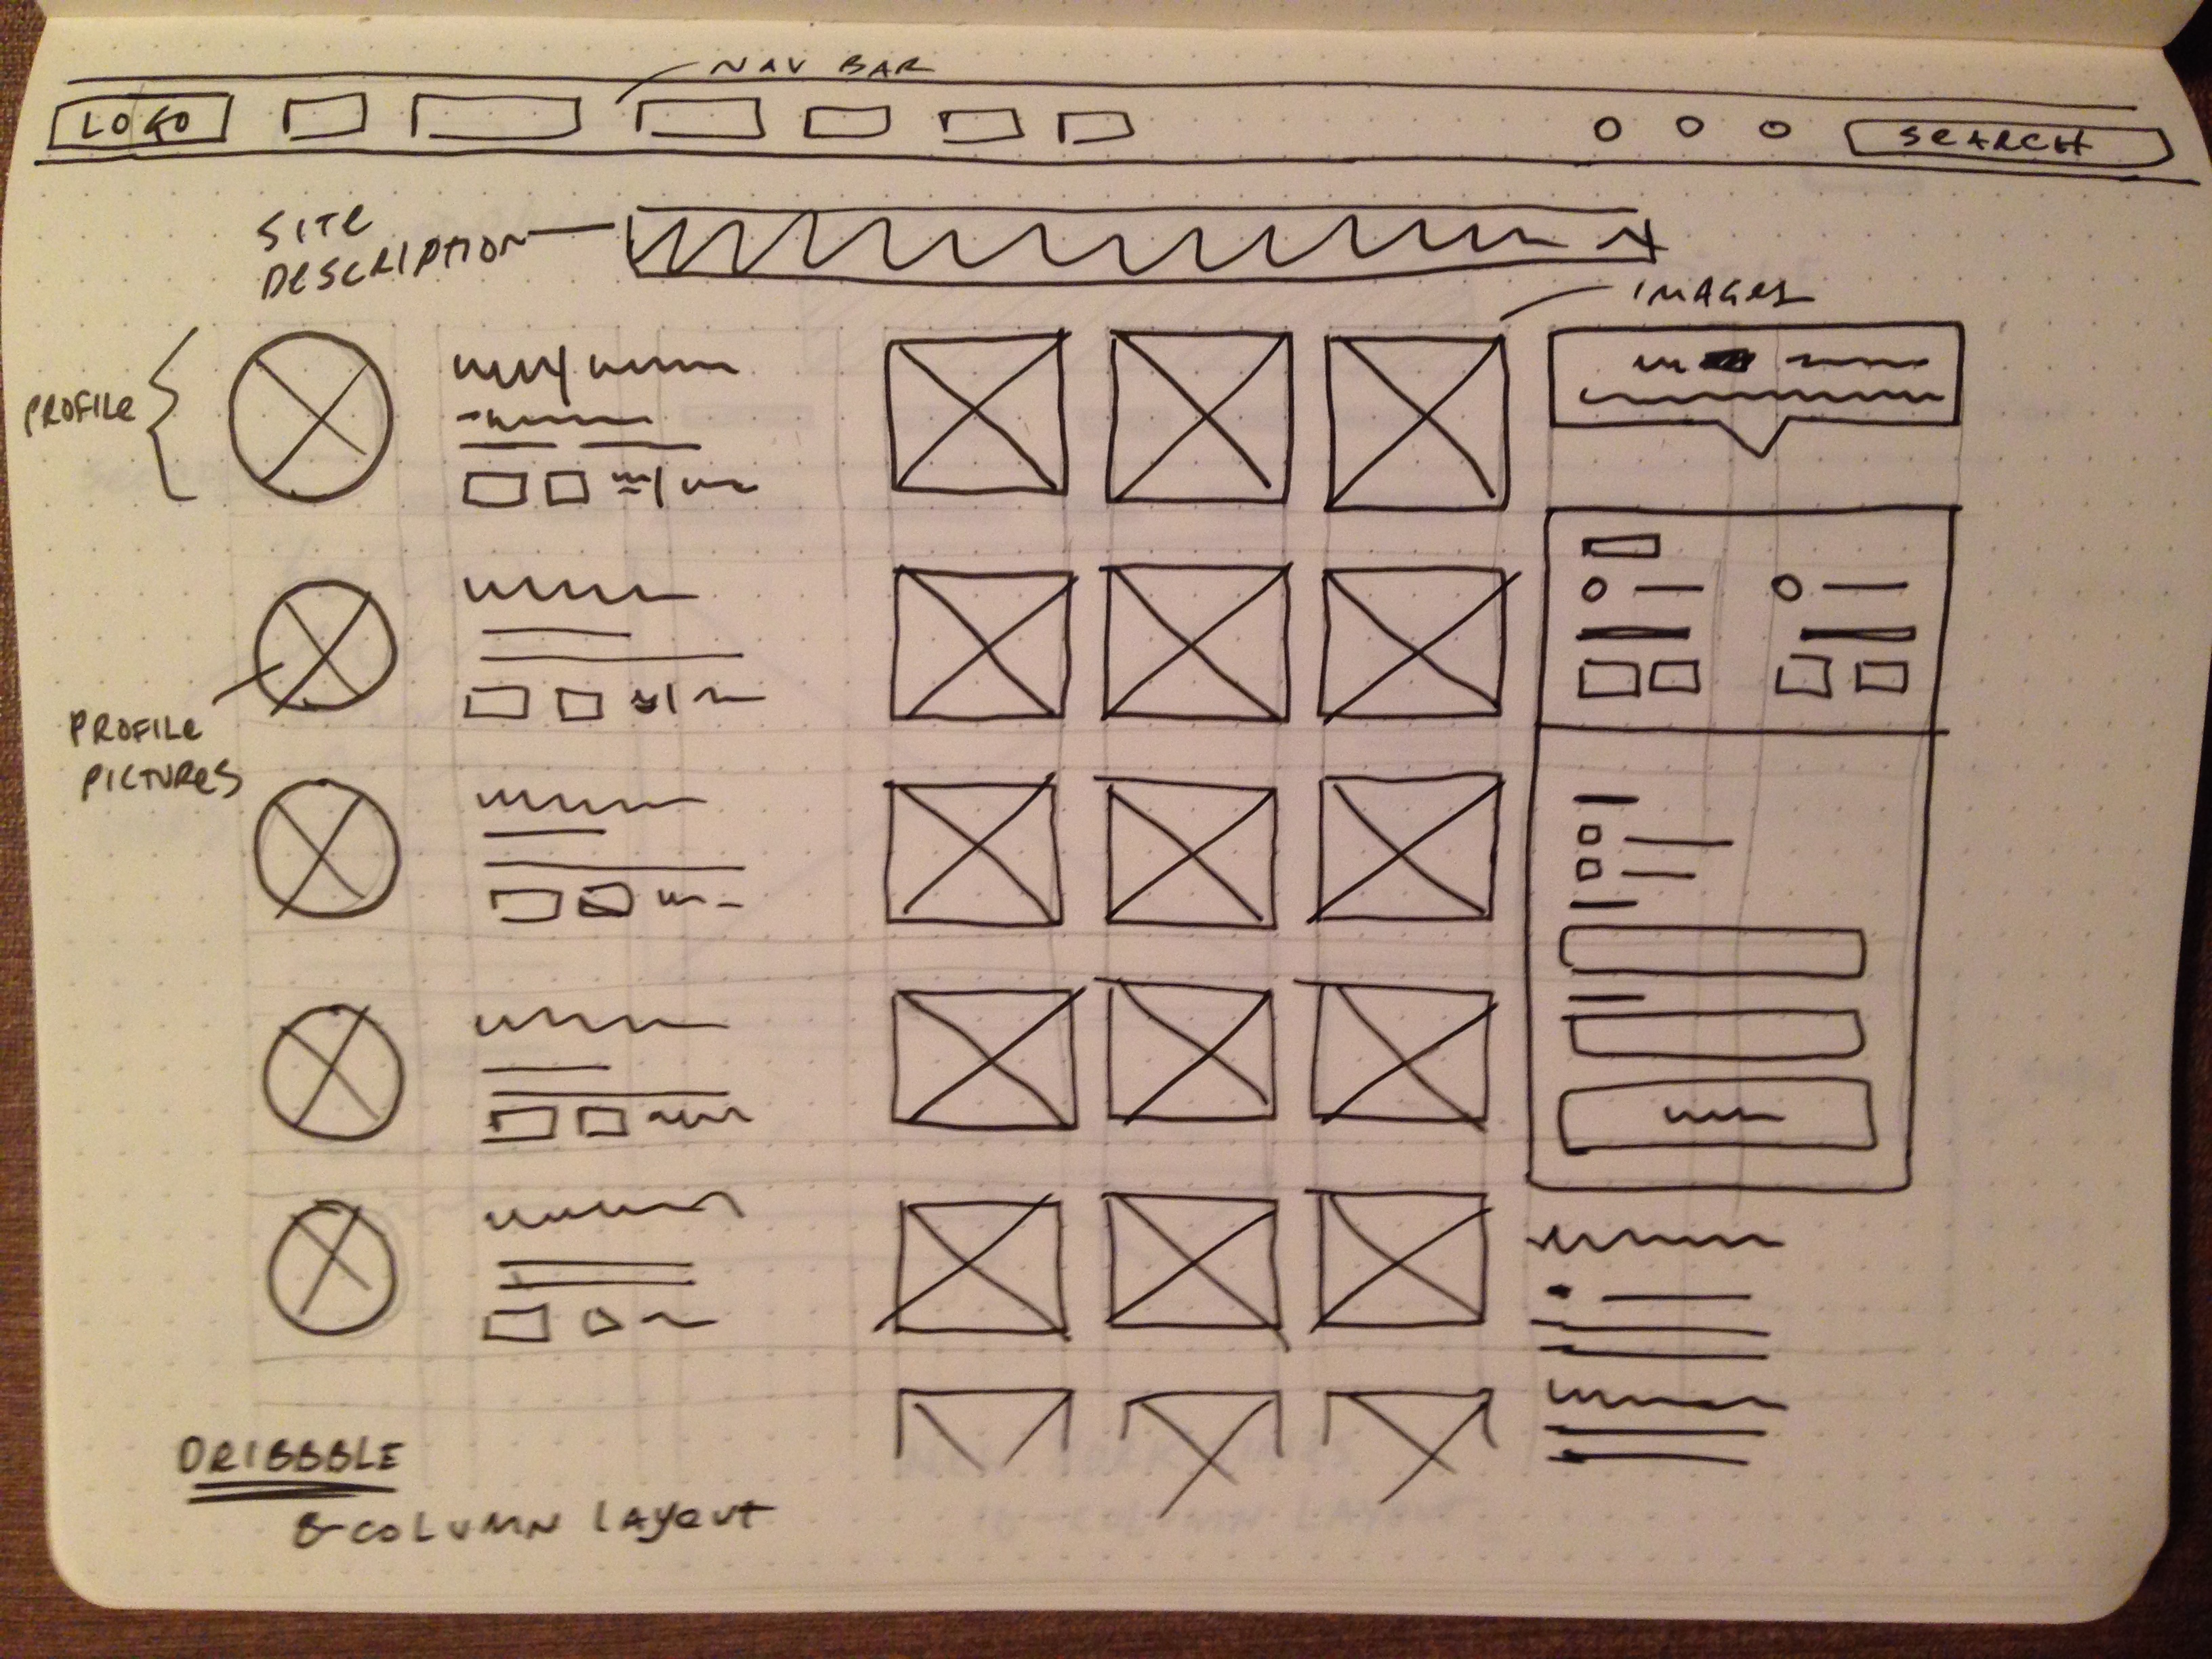 NAV BAR
LOGO
SEARCH
SITE
DESCRIPTION
IMAGES
PROFILE
PROFILE
PICTURES
DRIBBBLE
8-COLUMN LAYOUT